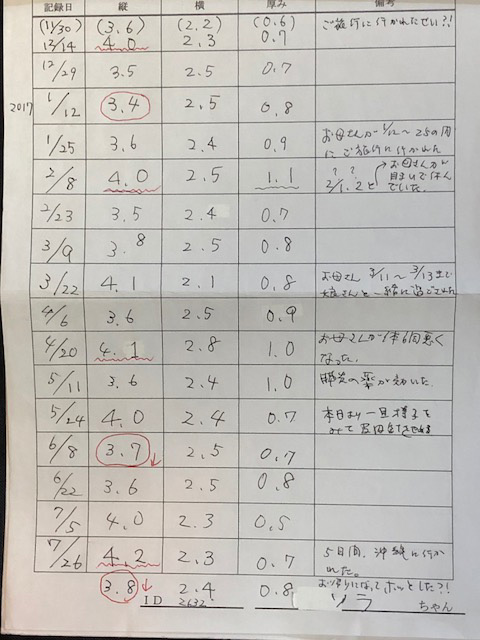 記録日 縦 横 厚み 備考
(11/30) (3.6) (2.2) (0.6) ご旅行に行かれたせい?!
12/14 4.0 2.3 0.7
12/29 3.5 2.5 0.7
2017 1/12 3.4 2.5 0.8
1/25 3.6 2.4 0.9 お母さんが1/12〜25の間
にご旅行に行かれた
2/8 4.0 2.5 1.1 2/1.2と お母さんが
でいた。
2/23 3.5 2.4 0.7
3/9 3.8 2.5 0.8
3/22 4.1 2.1 0.8 お母さん 3/11〜3/13まで
娘さんと一緒に過ごされた
4/6 3.6 2.5 0.9
4/20 4.1 2.8 1.0 お母さんが体調悪く
なった。
5/11 3.6 2.4 1.0 膵炎の薬が効いた。
5/24 4.0 2.4 0.7 本日より一旦様子を
みて
6/8 3.7 2.5 0.7
6/22 3.6 2.5 0.8
7/5 4.0 2.3 0.5
7/26 4.2 2.3 0.7 5日間、沖縄に行か
れた。
3.8 2.4 0.8 お帰りになってホッとした?!
ID 2632 ソラ ちゃん